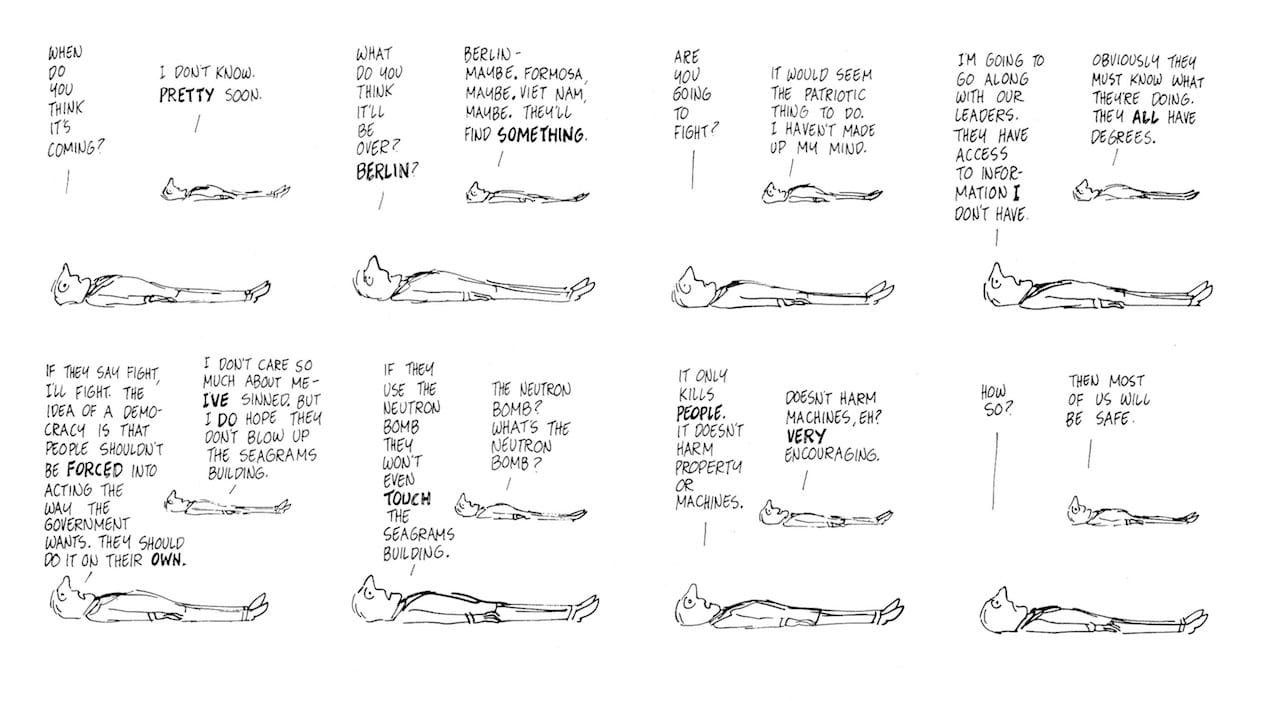 WHEN
DO
YOU
THINK
IT'S
COMING?
I DON'T KNOW.
PRETTY SOON.
WHAT
DO YOU
THINK
IT'LL
BE
OVER?
BERLIN?
BERLIN -
MAYBE. FORMOSA,
MAYBE. VIET NAM,
MAYBE. THEY'LL
FIND SOMETHING.
ARE
YOU
GOING
TO
FIGHT?
IT WOULD SEEM
THE PATRIOTIC
THING TO DO.
I HAVEN'T MADE
UP MY MIND.
I'M GOING TO
GO ALONG
WITH OUR
LEADERS.
THEY HAVE
ACCESS
TO INFOR-
MATION I
DON'T HAVE.
OBVIOUSLY THEY
MUST KNOW WHAT
THEY'RE DOING.
THEY ALL HAVE
DEGREES.
IF THEY SAY FIGHT,
I'LL FIGHT. THE
IDEA OF A DEMO-
CRACY IS THAT
PEOPLE SHOULDN'T
BE FORCED INTO
ACTING THE
WAY THE
GOVERNMENT
WANTS. THEY SHOULD
DO IT ON THEIR OWN.
I DON'T CARE SO
MUCH ABOUT ME-
I'VE SINNED. BUT
I DO HOPE THEY
DON'T BLOW UP
THE SEAGRAMS
BUILDING.
IF THEY
USE THE
NEUTRON
BOMB
THEY
WON'T
EVEN
TOUCH
THE
SEAGRAMS
BUILDING.
THE NEUTRON
BOMB?
WHAT'S THE
NEUTRON
BOMB?
IT ONLY
KILLS
PEOPLE.
IT DOESN'T
HARM
PROPERTY
OR
MACHINES.
DOESN'T HARM
MACHINES, EH?
VERY
ENCOURAGING.
HOW
SO?
THEN MOST
OF US WILL
BE SAFE.